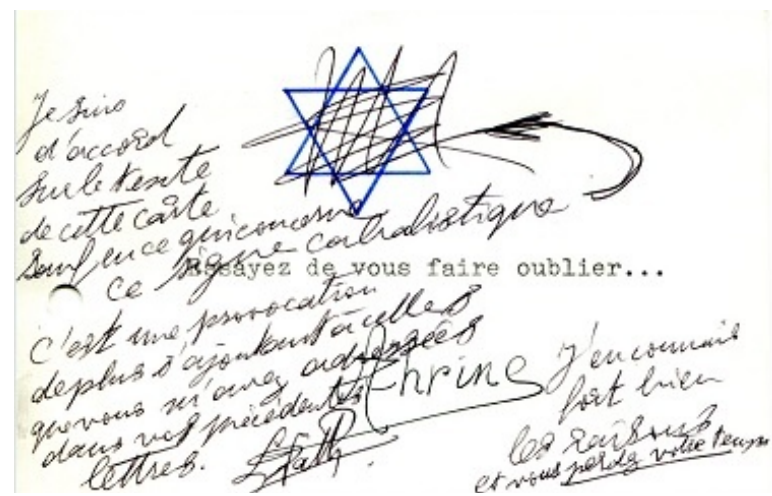 Je suis
d'accord
sur le texte
de cette carte
sauf en ce qui concerne
ce signe cabalistique
Essayez de vous faire oublier...
C'est une provocation
de plus s'ajoutant à celles
que vous m'avez adressées
dans vos précédentes
lettres.
J'en connais
fort bien
les raisons
et vous perdez votre temps